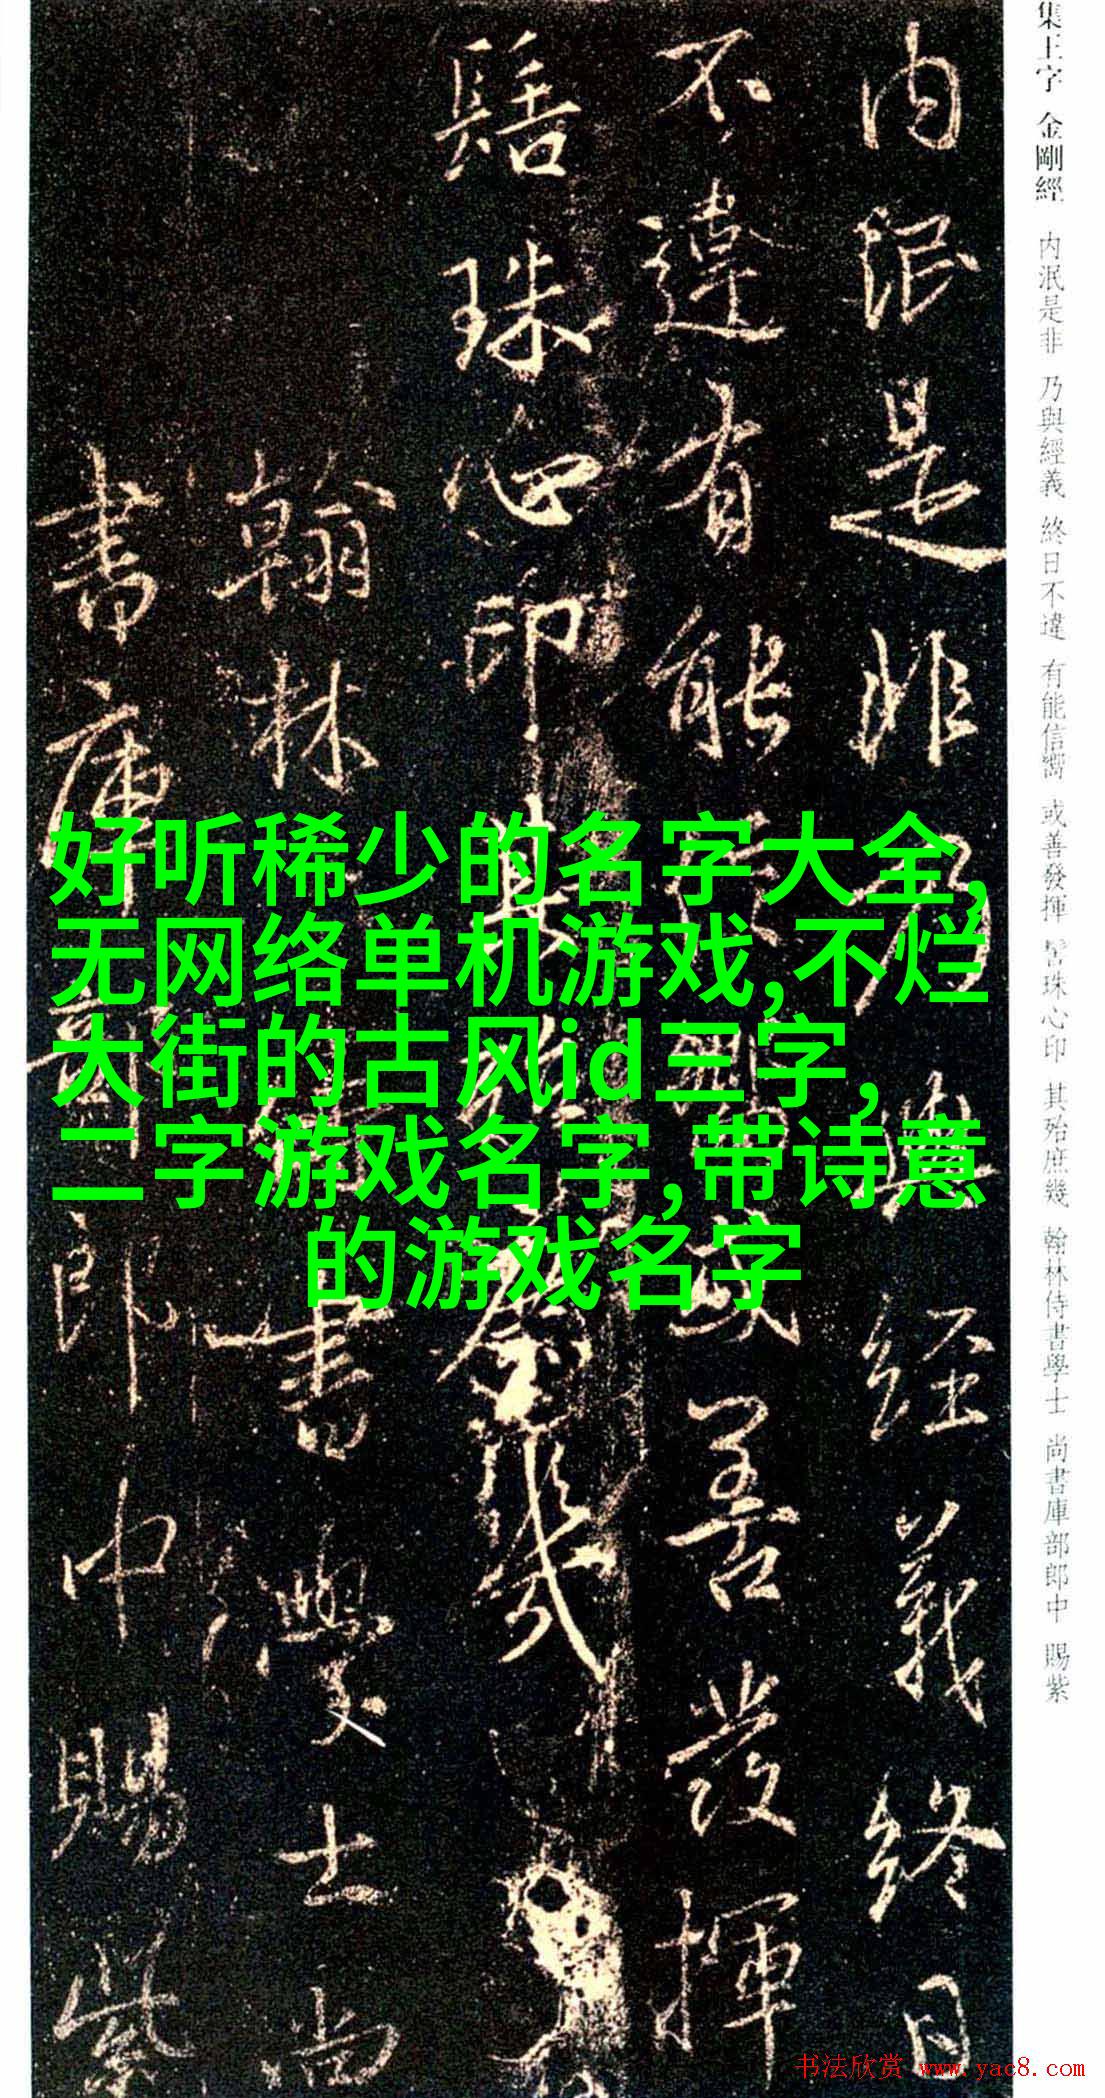 集王字 金剛經 内泯是非 乃與經義 終日不違 有能信嚮 或善發揮 髻珠心印 其殆庶幾 翰林侍書學士 尚書庫部郎中 賜紫
内泯是非乃與經義終日
不違有能信嚮或善發揮
髻珠心印其殆庶幾
翰林侍書學士尚
書庫部郎中賜紫
好听稀少的名字大全,
无网络单机游戏,不烂
大街的古风id三字,
二字游戏名字,带诗意
的游戏名字
书法欣赏 www.yac8.com